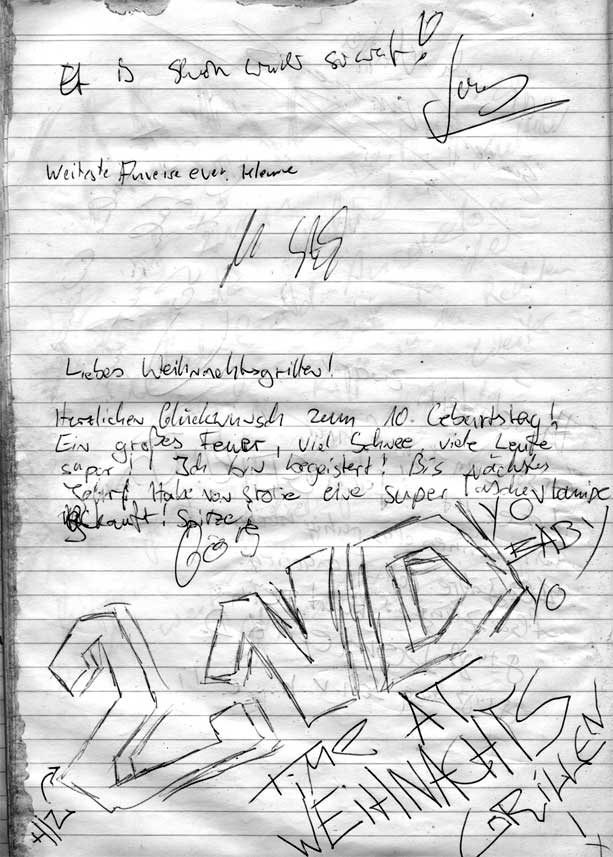 Et is schon wieder soweit!
Weiteste Anreise ever.
Liebes Weihnachtsgrillen!
Herzlichen Glückwunsch zum 10. Geburtstag!
Ein großes Feuer, viel Schnee, viele Leute
super! Ich bin begeistert! Bis nächstes
Jahr! Habe von eine super Taschenlampe
gekauft! Spitze!
YO
BABY
YO
2ND
TIME AT
WEIHNACHTS
GRILLEN